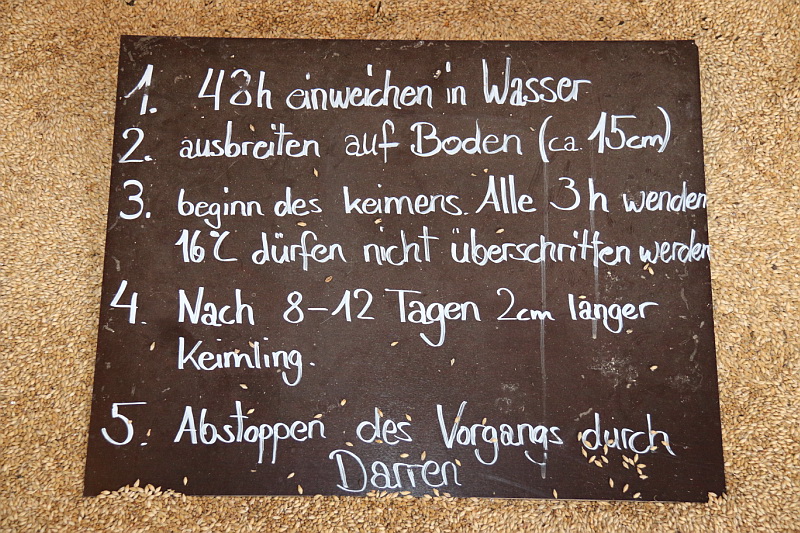 1. 48h einweichen in Wasser
2. ausbreiten auf Boden (ca. 15cm)
3. beginn des keimens. Alle 3h wenden
16°C dürfen nicht überschritten werden
4. Nach 8-12 Tagen 2cm langer
Keimling.
5. Abstoppen des Vorgangs durch
Darren